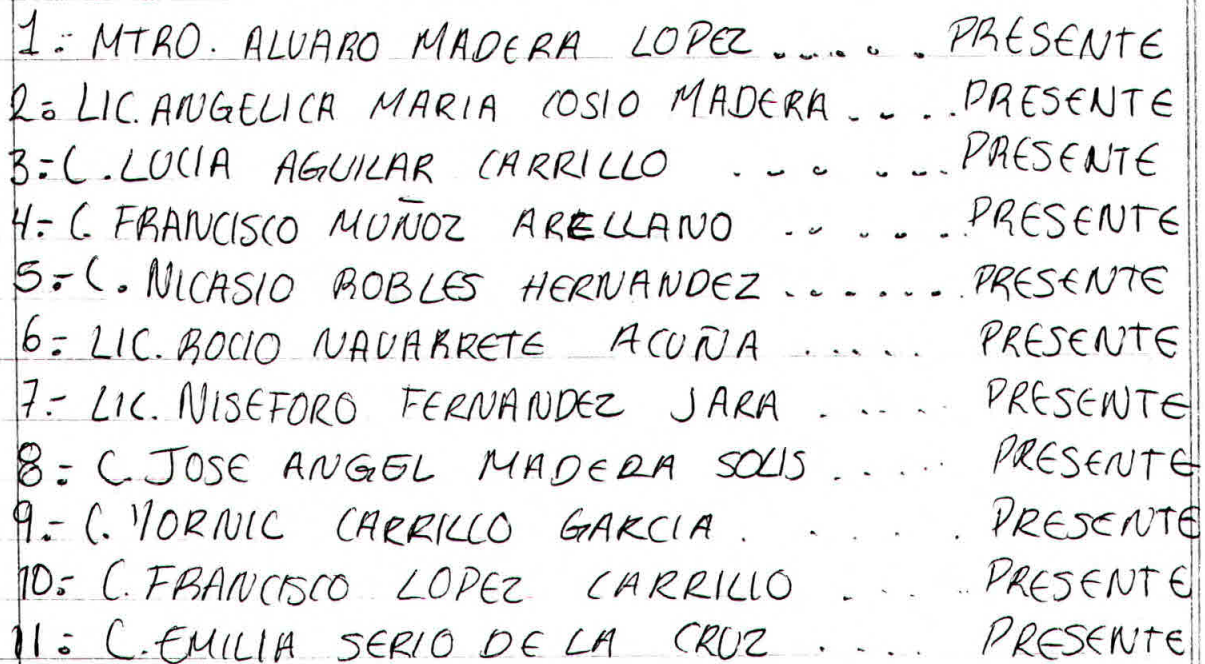 1.- MTRO. ALVARO MADERA LOPEZ ...... PRESENTE
2.- LIC. ANGELICA MARIA COSIO MADERA .... PRESENTE
3.- C. LUCIA AGUILAR CARRILLO ...... PRESENTE
4.- C. FRANCISCO MUÑOZ ARELLANO ..... PRESENTE
5.- C. NICASIO ROBLES HERNANDEZ ...... PRESENTE
6.- LIC. ROCIO NAVARRETE ACUÑA ..... PRESENTE
7.- LIC. NISEFORO FERNANDEZ JARA ..... PRESENTE
8.- C. JOSE ANGEL MADERA SOLIS ..... PRESENTE
9.- C. YORNIC CARRILLO GARCIA ..... PRESENTE
10.- C. FRANCISCO LOPEZ CARRILLO ..... PRESENTE
11.- C. EMILIA SERIO DE LA CRUZ .... PRESENTE